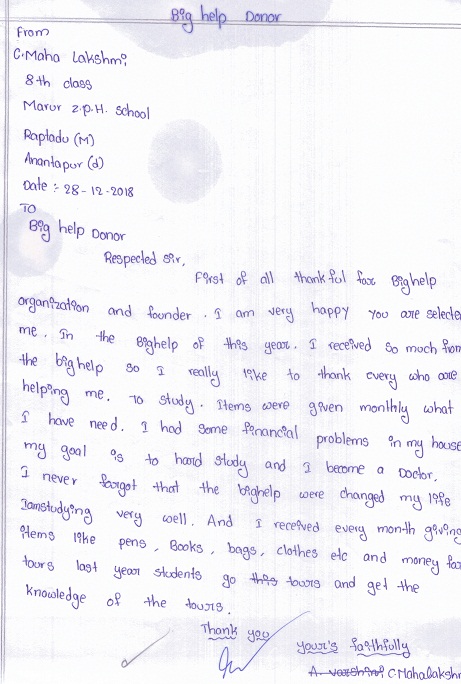 Big help Donor
From
C.Maha Lakshmi
8th class
Marur z.p.H. School
Raptadu (M)
Anantapur (d)
Date :- 28-12-2018
TO
Big help Donor
Respected sir,
First of all thankful for Bighelp
organization and founder. I am very happy you are selecte
me. In the Bighelp of this year. I received so much from
the bighelp so I really like to thank every who are
helping me. To study. Items were given monthly what
I have need. I had some financial problems in my house
my goal is to hard study and I become a Doctor.
I never forgot that the bighelp were changed my life
Iamstudying very well. And I received every month giving
items like pens, Books, bags, clothes etc and money for
tours last year students go this tours and get the
knowledge of the tours.
Thank you
your's faithfully
A. varshini C.Mahalakshm